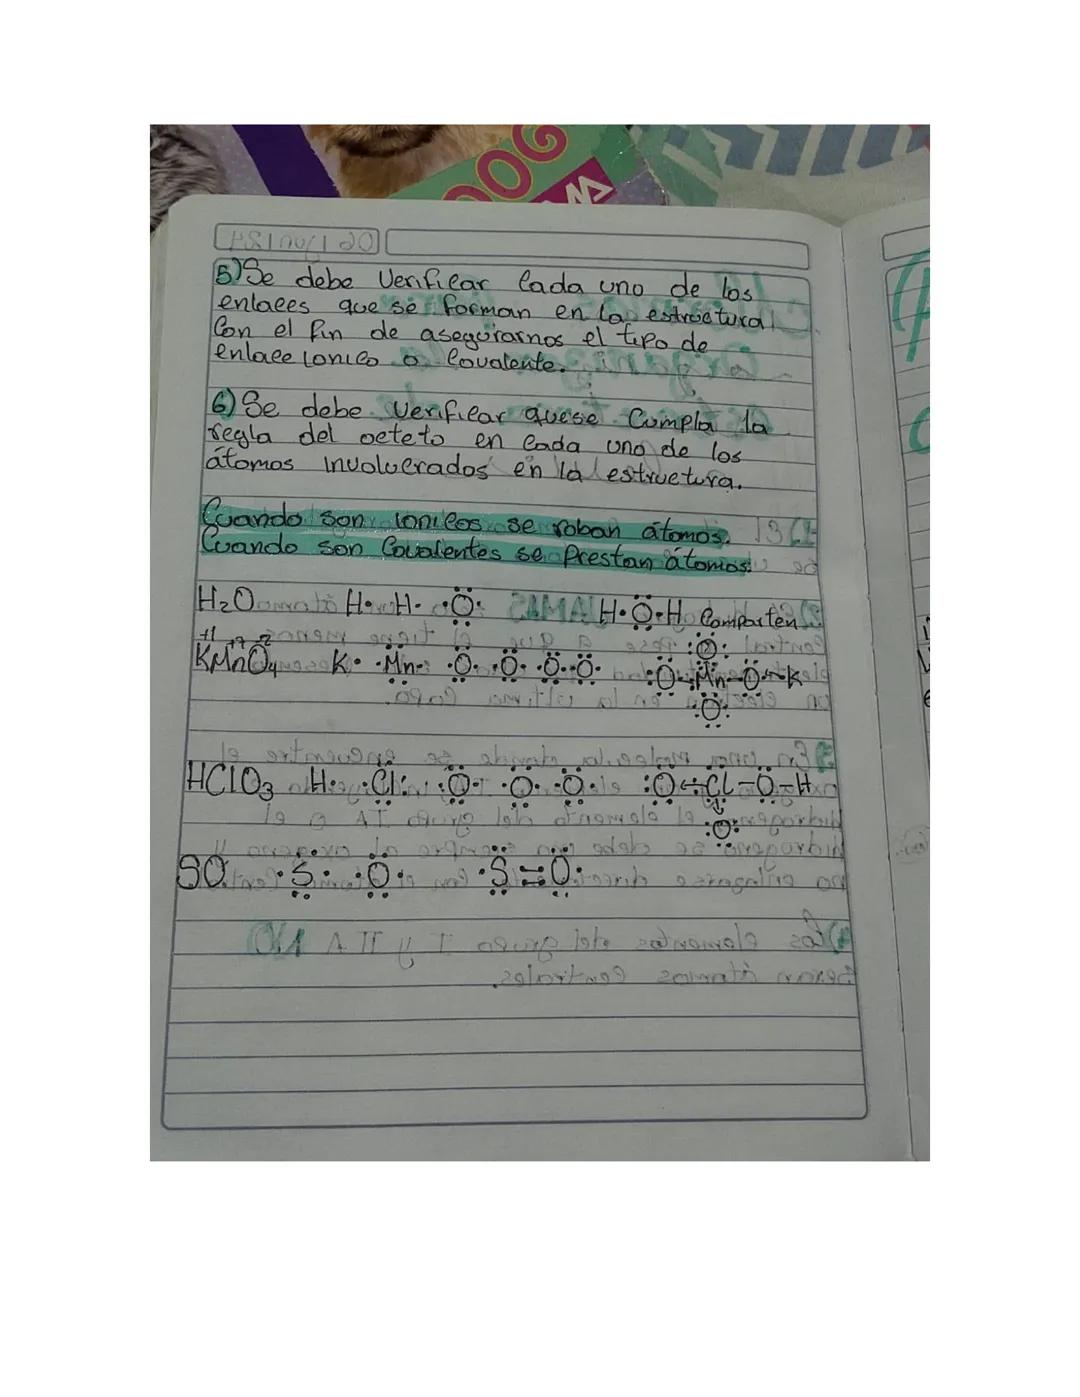 5) Se debe Verificar Cada uno de los
enlaces que se forman en la estructura
Con el fin de asegurarnos el tipo de
enlace Ionico o Covalente.
6) Se debe Verificar que se Cumpla la
regla del octeto en Cada uno de los
átomos Involucrados en la estructura.
Cuando son ionicos se roban átomos.
Cuando son Covalentes se Prestan átomos.
H₂O H· H· ·O: H·O·H Comparten
+1 +7 -2
KMnO₄ K· ·Mn· ·O· ·O· ·O· ·O· :O Mn-O K
:O:
:O:
HClO₃ H· ·Cl: :O· ·O· ·O· :O Cl-O-H
:O:
SO ·S· ·O· ·S=O: